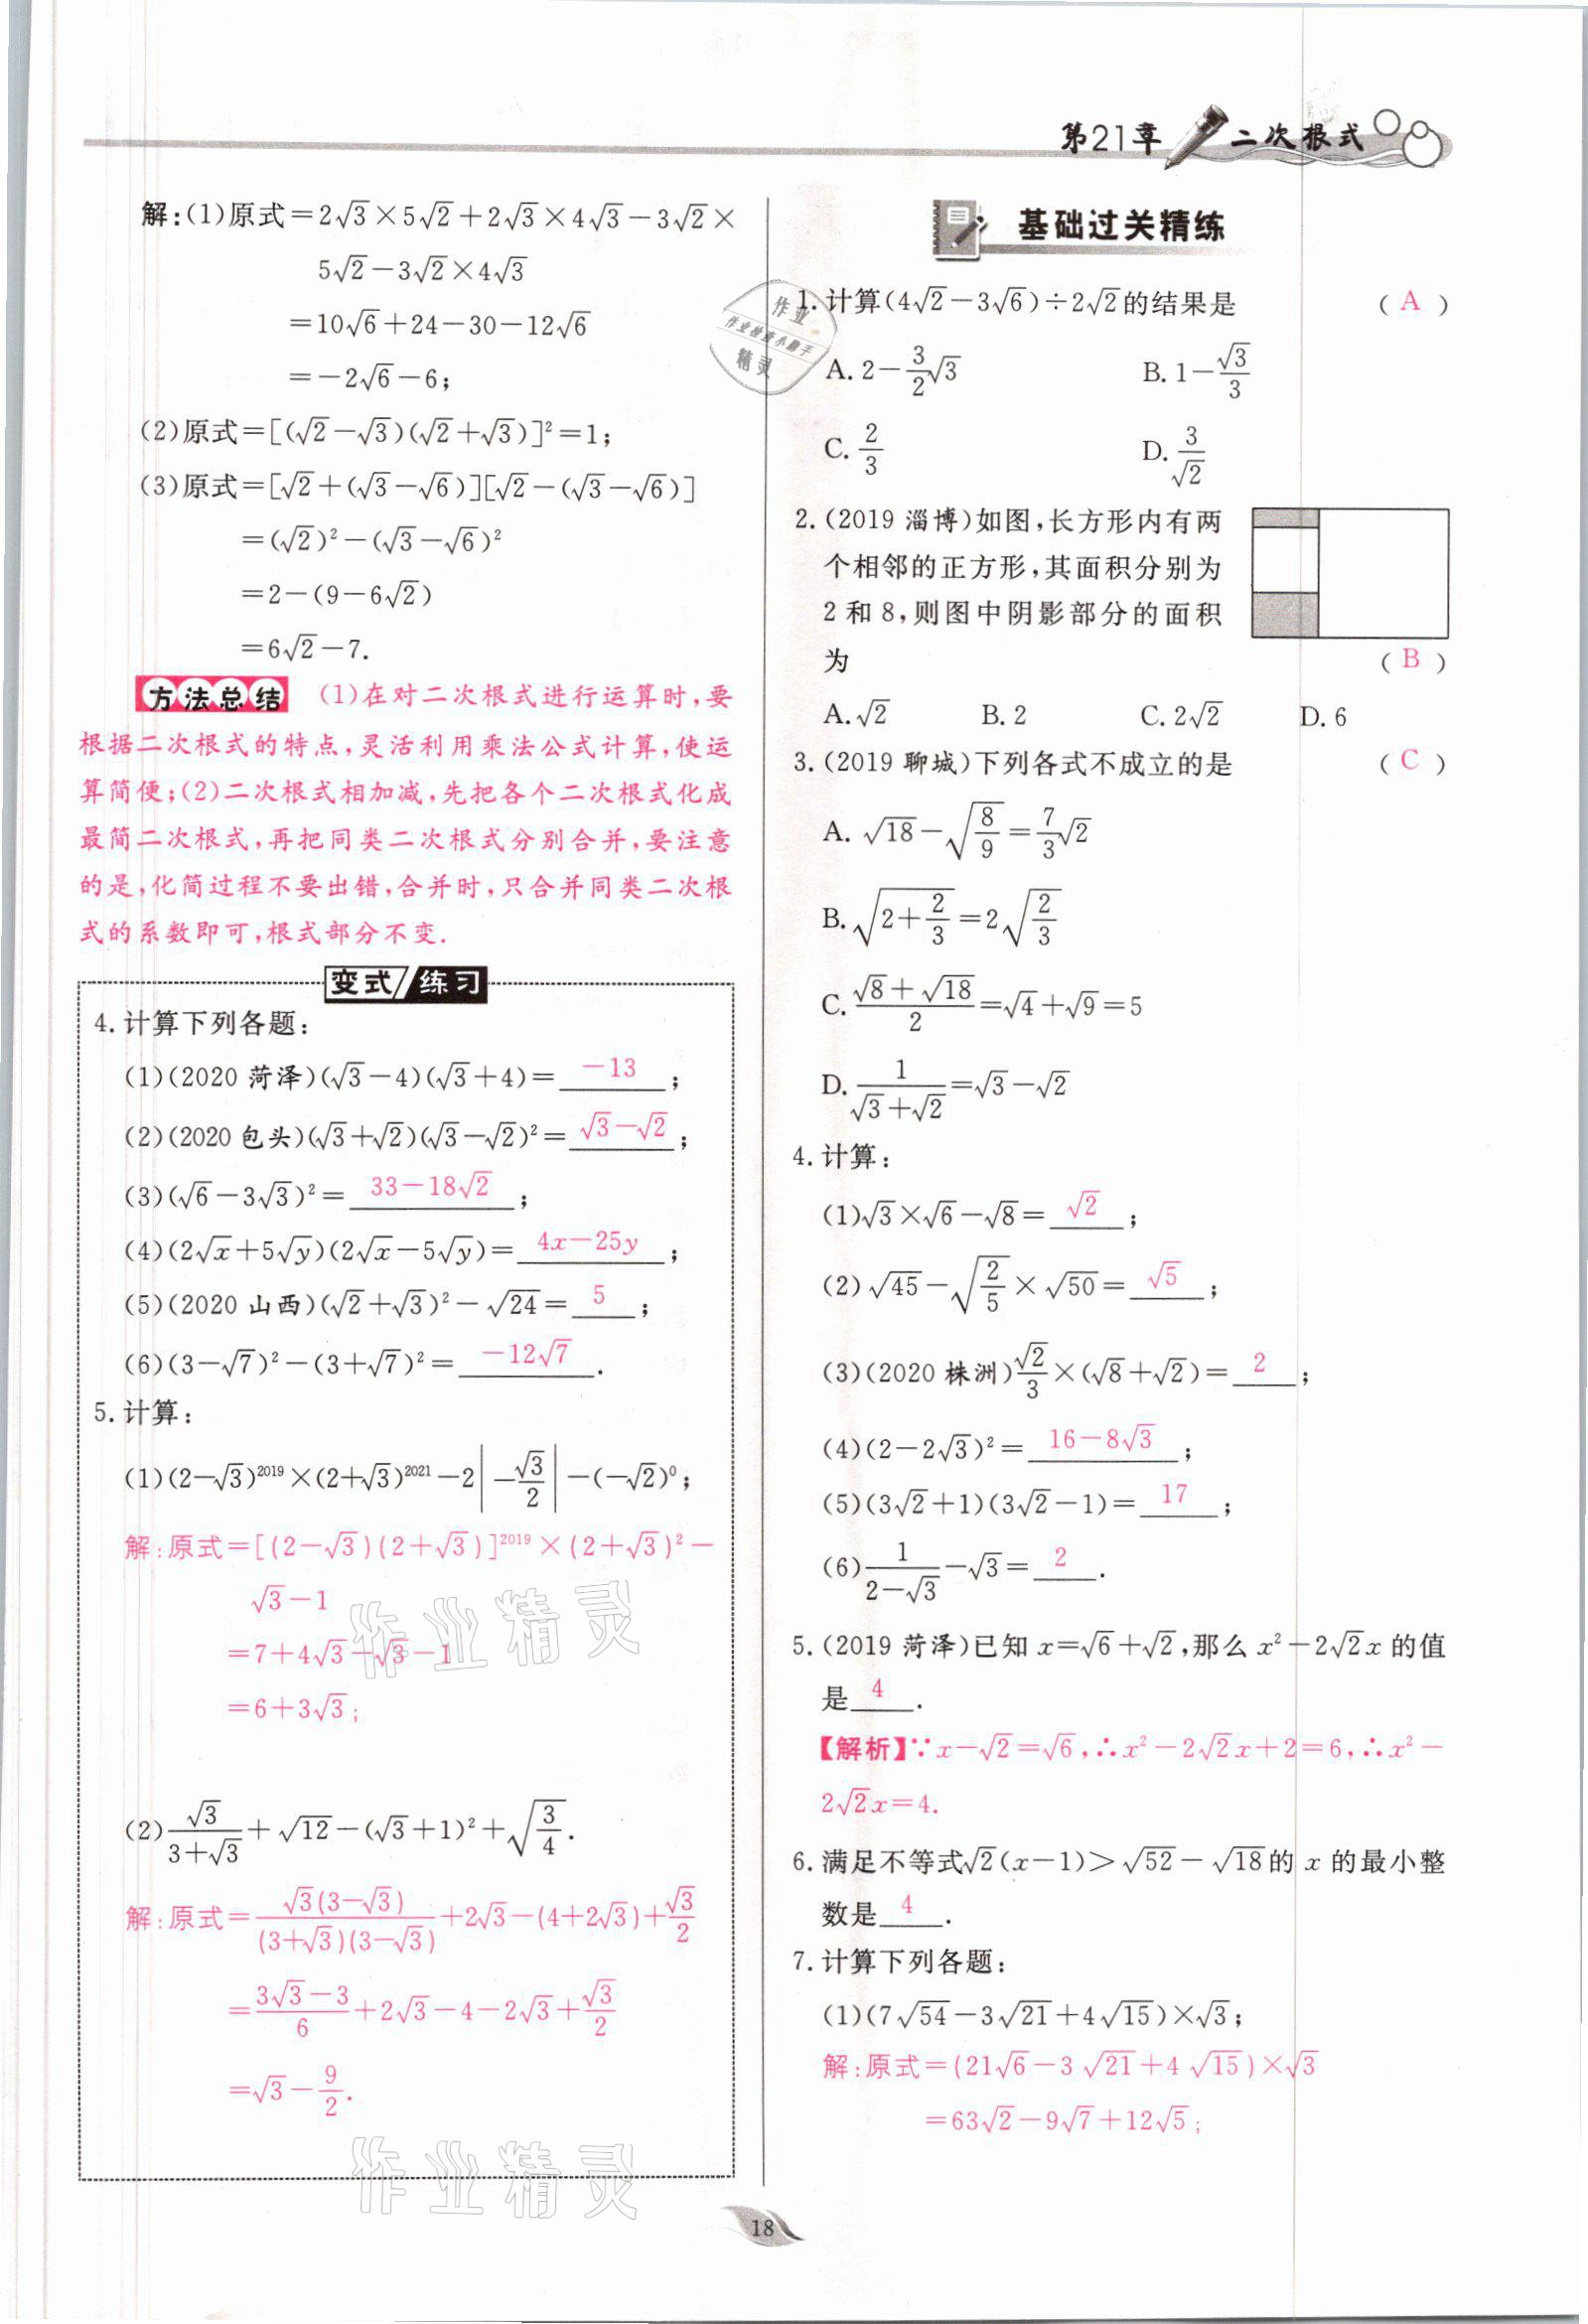 第21章 二次根式
解:(1)原式=2√3×5√2+2√3×4√3-3√2×
5√2-3√2×4√3
=10√6+24-30-12√6
=-2√6-6;
(2)原式=[(√2-√3)(√2+√3)]²=1;
(3)原式=[√2+(√3-√6)][√2-(√3-√6)]
=(√2)²-(√3-√6)²
=2-(9-6√2)
=6√2-7.
方法总结 (1)在对二次根式进行运算时,要
根据二次根式的特点,灵活利用乘法公式计算,使运
算简便;(2)二次根式相加减,先把各个二次根式化成
最简二次根式,再把同类二次根式分别合并,要注意
的是,化简过程不要出错,合并时,只合并同类二次根
式的系数即可,根式部分不变.
变式/练习
4. 计算下列各题:
(1)(2020 菏泽)(√3-4)(√3+4)= -13 ;
(2)(2020 包头)(√3+√2)(√3-√2)²= √3-√2 ;
(3)(√6-3√3)²= 33-18√2 ;
(4)(2√x+5√y)(2√x-5√y)= 4x-25y ;
(5)(2020 山西)(√2+√3)²-√24= 5 ;
(6)(3-√7)²-(3+√7)²= -12√7 .
5. 计算:
(1)(2-√3)²⁰¹⁹×(2+√3)²⁰²¹-2|-√3/2|-(-√2)⁰;
解:原式=[(2-√3)(2+√3)]²⁰¹⁹×(2+√3)²-
√3-1
=7+4√3-√3-1
=6+3√3;
(2)√3/(3+√3)+√12-(√3+1)²+√(3/4).
解:原式=√3(3-√3)/((3+√3)(3-√3))+2√3-(4+2√3)+√3/2
=(3√3-3)/6+2√3-4-2√3+√3/2
=√3-9/2.
基础过关精练
1. 计算(4√2-3√6)÷2√2的结果是 ( A )
A. 2-3/2√3 B. 1-√3/3
C. 2/3 D. 3/√2
2. (2019 淄博)如图,长方形内有两
个相邻的正方形,其面积分别为
2 和 8,则图中阴影部分的面积
为 ( B )
A. √2 B. 2 C. 2√2 D. 6
3. (2019 聊城)下列各式不成立的是 ( C )
A. √18-√(8/9)=7/3√2
B. √(2+2/3)=2√(2/3)
C. (√8+√18)/2=√4+√9=5
D. 1/(√3+√2)=√3-√2
4. 计算:
(1)√3×√6-√8= √2 ;
(2)√45-√(2/5)×√50= √5 ;
(3)(2020 株洲)√2/3×(√8+√2)= 2 ;
(4)(2-2√3)²= 16-8√3 ;
(5)(3√2+1)(3√2-1)= 17 ;
(6)1/(2-√3)-√3= 2 .
5. (2019 菏泽)已知 x=√6+√2,那么 x²-2√2x 的值
是 4 .
【解析】∵x-√2=√6,∴x²-2√2x+2=6,∴x²-
2√2x=4.
6. 满足不等式√2(x-1)>√52-√18的 x 的最小整
数是 4 .
7. 计算下列各题:
(1)(7√54-3√21+4√15)×√3;
解:原式=(21√6-3√21+4√15)×√3
=63√2-9√7+12√5;
18
作业
作业检查小助手
精灵
作业精灵
作业精灵